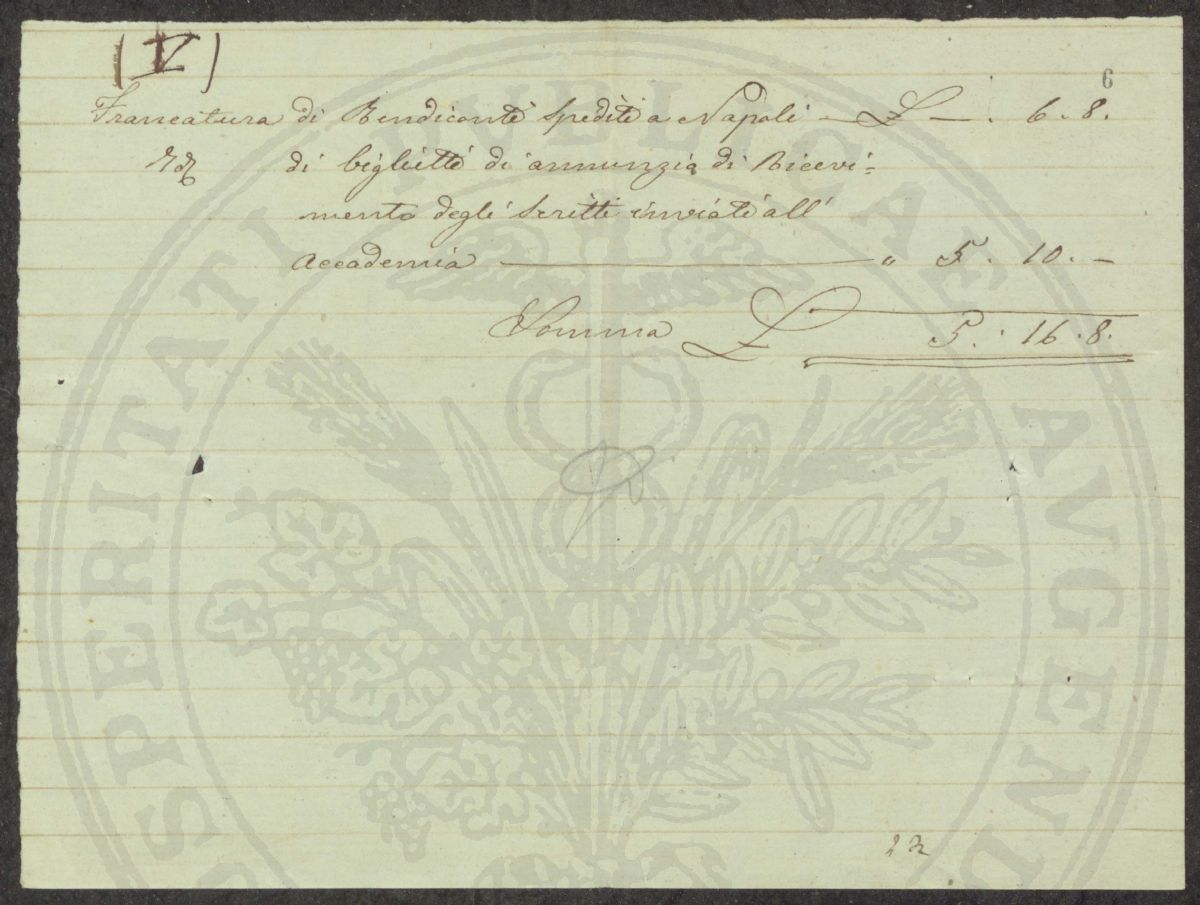 (V)
6
Francatura di Rendiconti spediti a Napoli — £ — . 6. 8.
Id di biglietti di annunzio di Ricevi=
mento degli scritti inviati all'
Accademia — " 5. 10. —
Somma £ 5. 16. 8.
PROSPERITATI PVBLICAE AVGENDAE